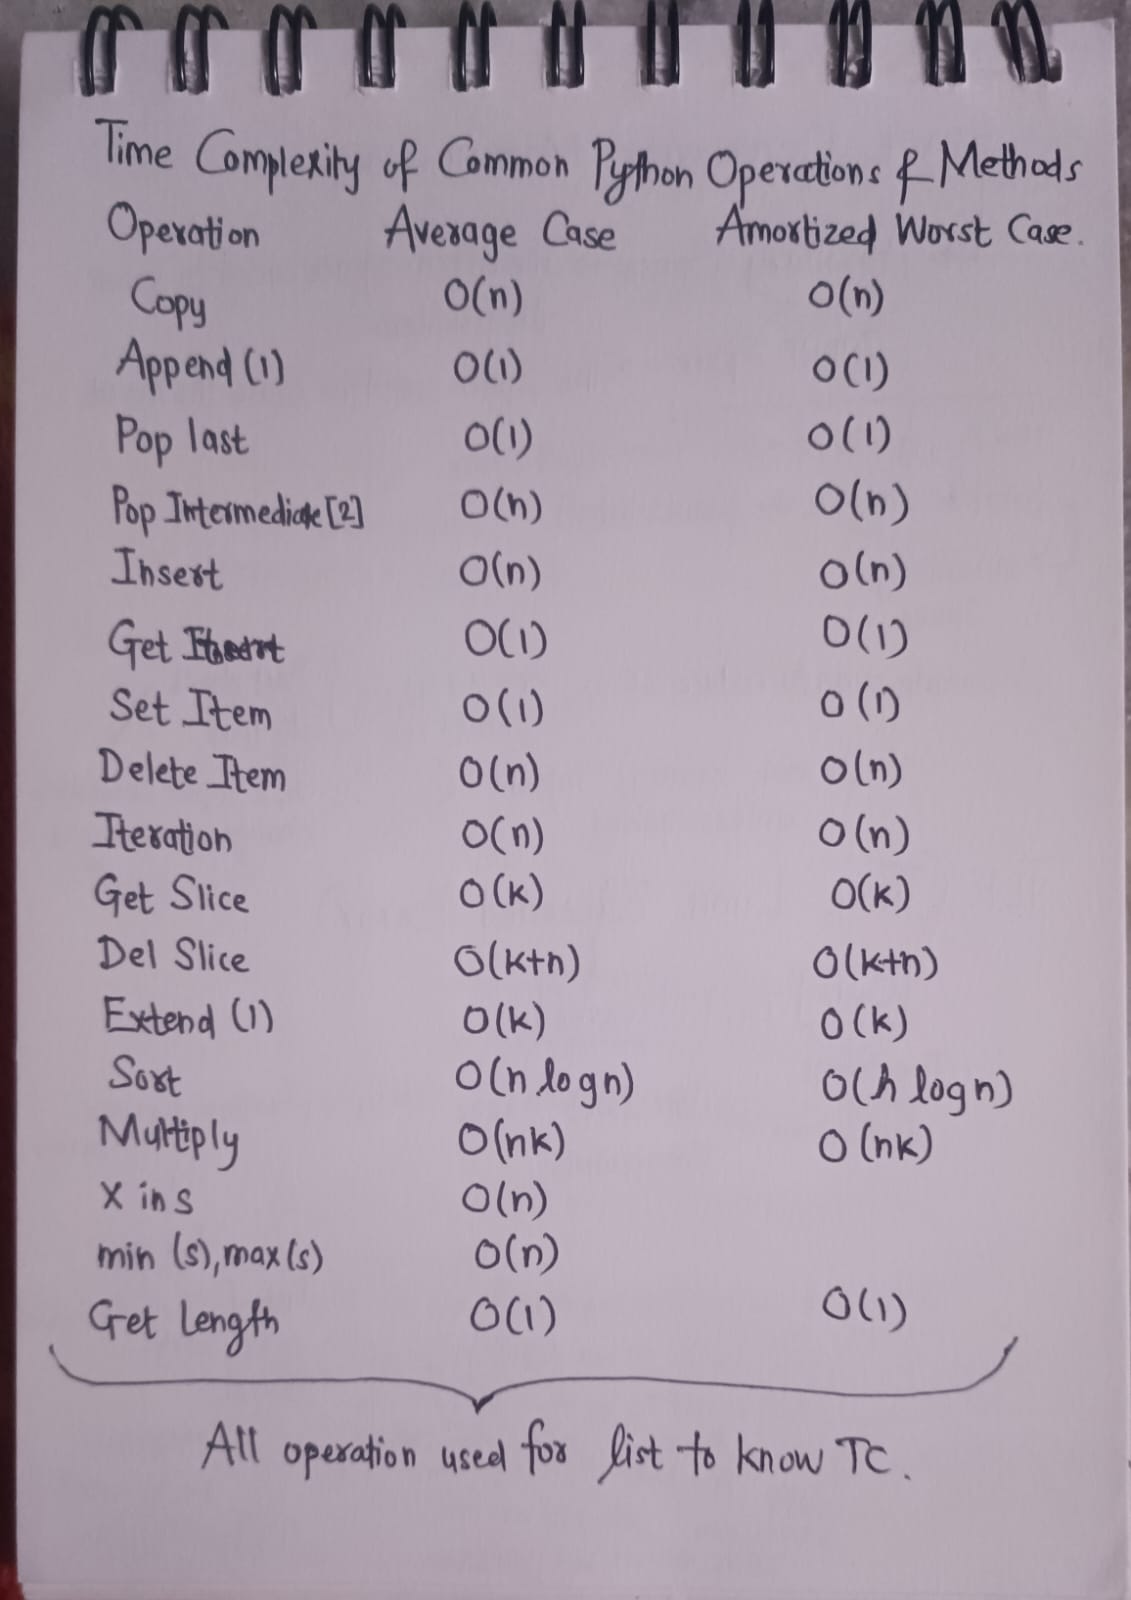 Time Complexity of Common Python Operations & Methods
Operation Average Case Amortized Worst Case.
Copy O(n) O(n)
Append (1) O(1) O(1)
Pop last O(1) O(1)
Pop Intermediate [2] O(n) O(n)
Insert O(n) O(n)
Get O(1) O(1)
Set Item O(1) O(1)
Delete Item O(n) O(n)
Iteration O(n) O(n)
Get Slice O(k) O(k)
Del Slice O(k+n) O(k+n)
Extend (1) O(k) O(k)
Sort O(n logn) O(n logn)
Multiply O(nk) O(nk)
X in s O(n)
min (s), max (s) O(n)
Get Length O(1) O(1)
All operation used for list to know TC.